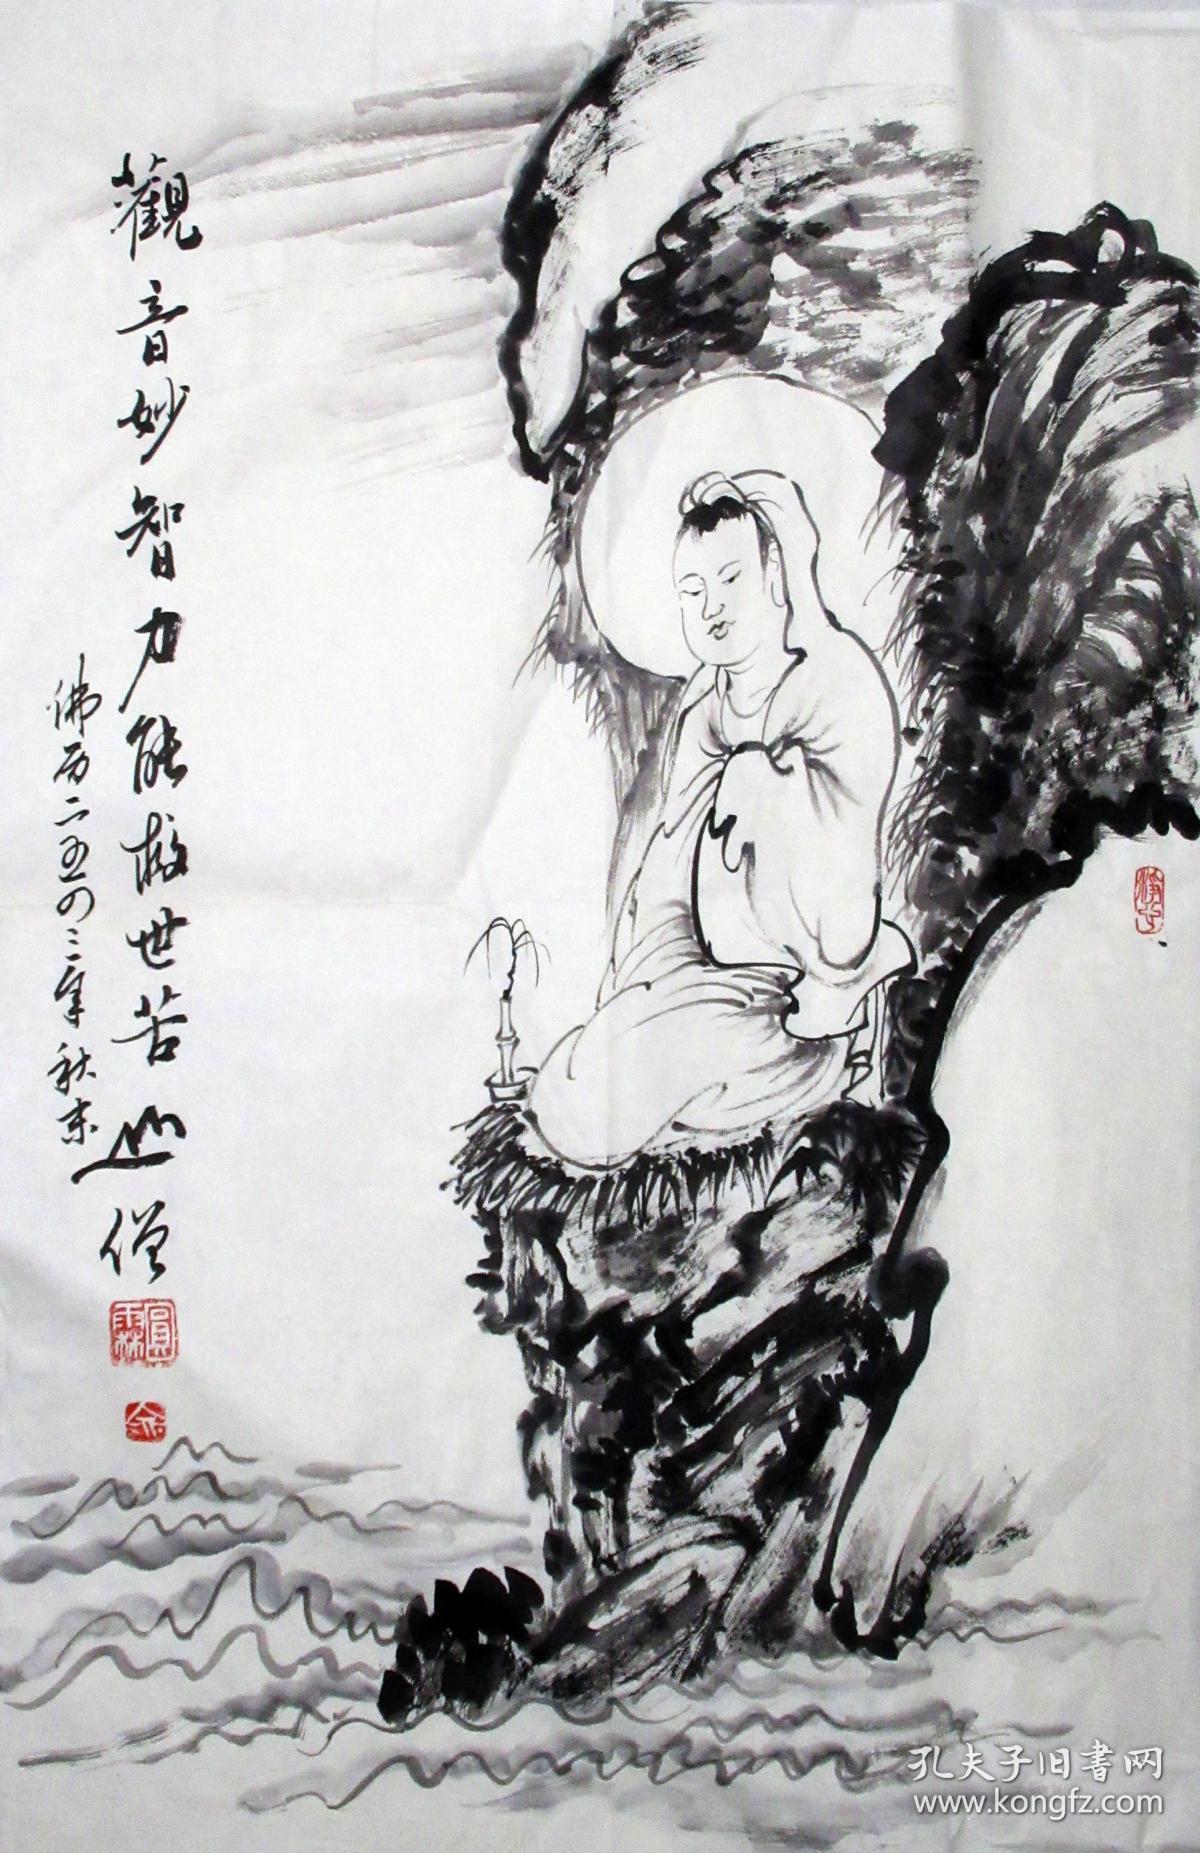 觀音妙智力能救世苦 山僧
佛历二五四三年秋末
圓霖
孔夫子旧书网
www.kongfz.com